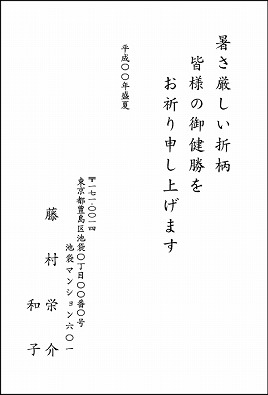 暑さ厳しい折柄
皆様の御健勝を
お祈り申し上げます
平成〇〇年盛夏
〒一七一-〇〇一四
東京都豊島区池袋〇丁目〇〇番〇号
池袋マンション六〇一
藤村栄介
和子